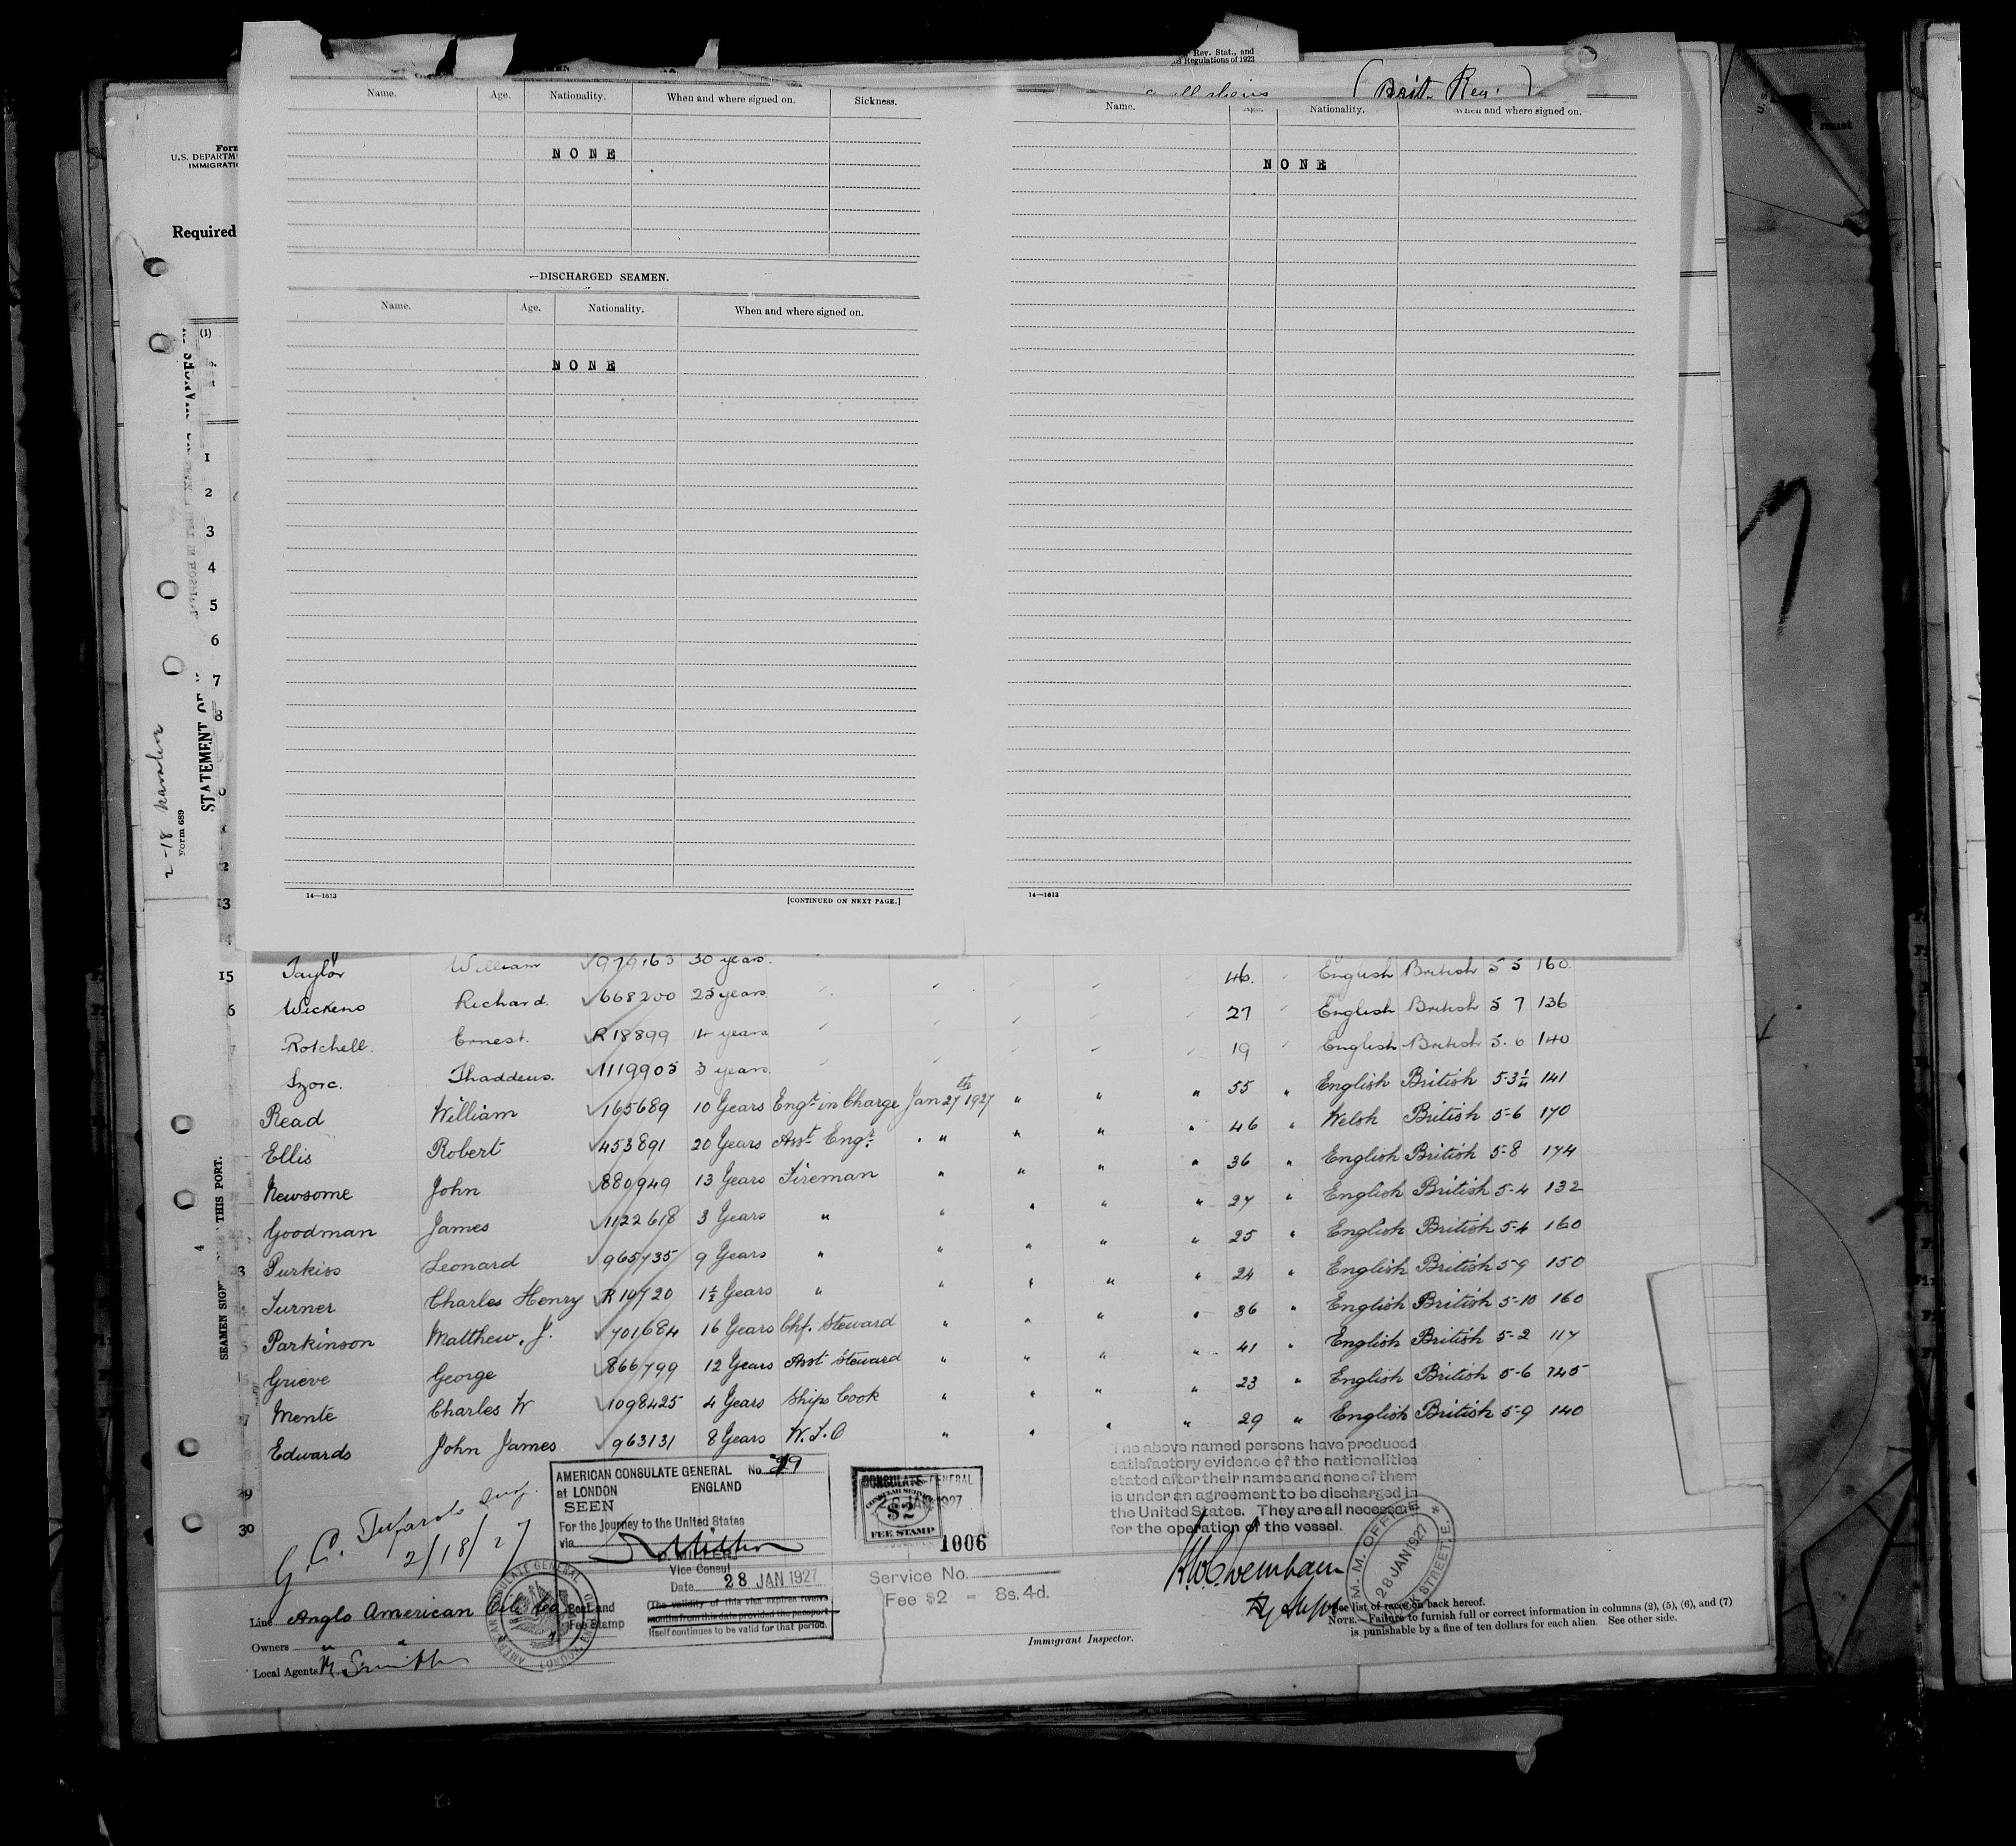 Rev. Stat., and
Regulations of 1923
all aliens (Brit. Reg.)
Name. Age. Nationality. When and where signed on. Sickness.
NONE
—DISCHARGED SEAMEN.
Name. Age. Nationality. When and where signed on.
NONE
14—1613 [CONTINUED ON NEXT PAGE.]
Name. Age. Nationality. When and where signed on.
NONE
14—1613
must
Form
U.S. DEPARTM
IMMIGRATI
Required
(1)
1
2
3
4
5
6
7
8
2
3
STATEMENT OF
Form 689
2-18
SEAMEN SIG THIS PORT.
4
15 Taylor William 979163 30 years. 46. English British 5 5 160
6 Wickens Richard. 668200 25 years 27 English British 5 7 136
7 Rotchell. Ernest. R18899 14 years 19 English British 5. 6 140
Szorc. Thaddeus. 1119905 3 years 55 " English British 5-3¼ 141
Read William 165689 10 Years Engr. in Charge Jan 27th 1927 " " " 46 " Welsh British 5-6 170
Ellis Robert 453891 20 Years Asst. Engr. " " " " 36 " English British 5-8 174
Newsome John 880949 13 Years Fireman " " " " 27 " English British 5-4 132
Goodman James 1122618 3 Years " " " " " 25 " English British 5-4 160
3 Purkiss Leonard 965735 9 Years " " " " " 24 " English British 5-9 150
Turner Charles Henry R10720 1½ Years " " " " " 36 " English British 5-10 160
Parkinson Matthew. J. 701684 16 Years Chf. Steward " " " " 41 " English British 5-2 117
Grieve George 866799 12 Years Asst Steward " " " " 23 " English British 5-6 145
7 Mente Charles W 1098425 4 Years Ships Cook " " " " 29 " English British 5-9 140
Edwards John James 963131 8 Years W.T.O " "
29
30
G. C. 2/18/27
AMERICAN CONSULATE GENERAL No. 29
at LONDON ENGLAND
SEEN
For the Journey to the United States
via
Vice Consul
Date 28 JAN 1927
(The validity of this visa expires twelve
months from this date provided the passport
itself continues to be valid for that period.
Seal and
Fee Stamp
AMERICAN CONSULATE GENERAL LONDON
CONSULATE GENERAL
JAN 1927
CONSULAR SERVICE
$2
FEE STAMP
1006
Service No.
Fee $2 = 8s. 4d.
The above named persons have produced
satisfactory evidence of the nationalities
stated after their names and none of them
is under an agreement to be discharged in
the United States. They are all necessary
for the operation of the vessel.
M. M. OFFICE
28 JAN 1927
STREET, E.
Line Anglo American Oil Co
Owners " "
Local Agents Smith
Immigrant Inspector.
See list of races on back hereof.
NOTE.—Failure to furnish full or correct information in columns (2), (5), (6), and (7)
is punishable by a fine of ten dollars for each alien. See other side.